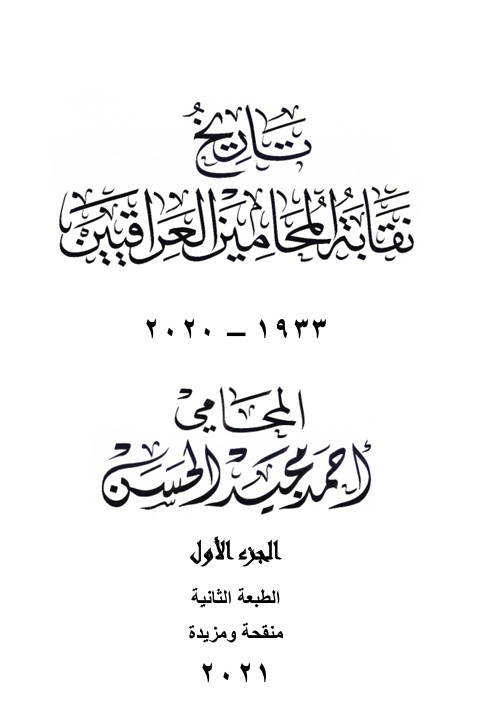 تاريخ
نقابة المحامين العراقيين
١٩٣٣ – ٢٠٢٠
المحامي
أحمد مجيد الحسن
الجزء الأول
الطبعة الثانية
منقحة ومزيدة
٢٠٢١